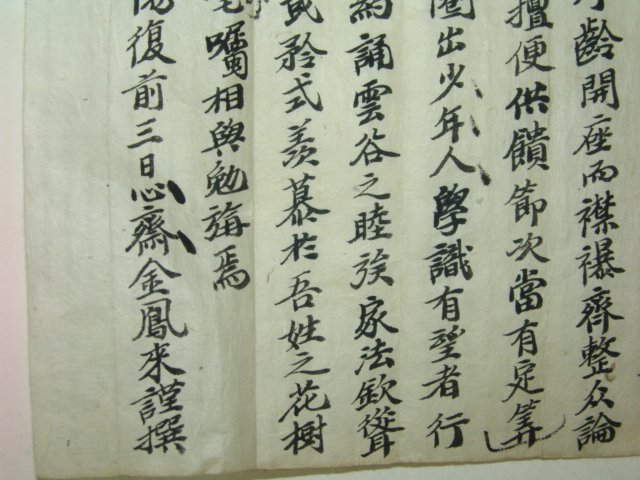 齡開座而襟襮齊整众論
擅便供饋節次當有定筭
圈出少年人學識有望者行
約誦雲谷之睦族家法欽聳
或矜式羨慕於吾姓之花樹
囑相與勉旃焉
陽復前三日心齋金鳳來謹撰